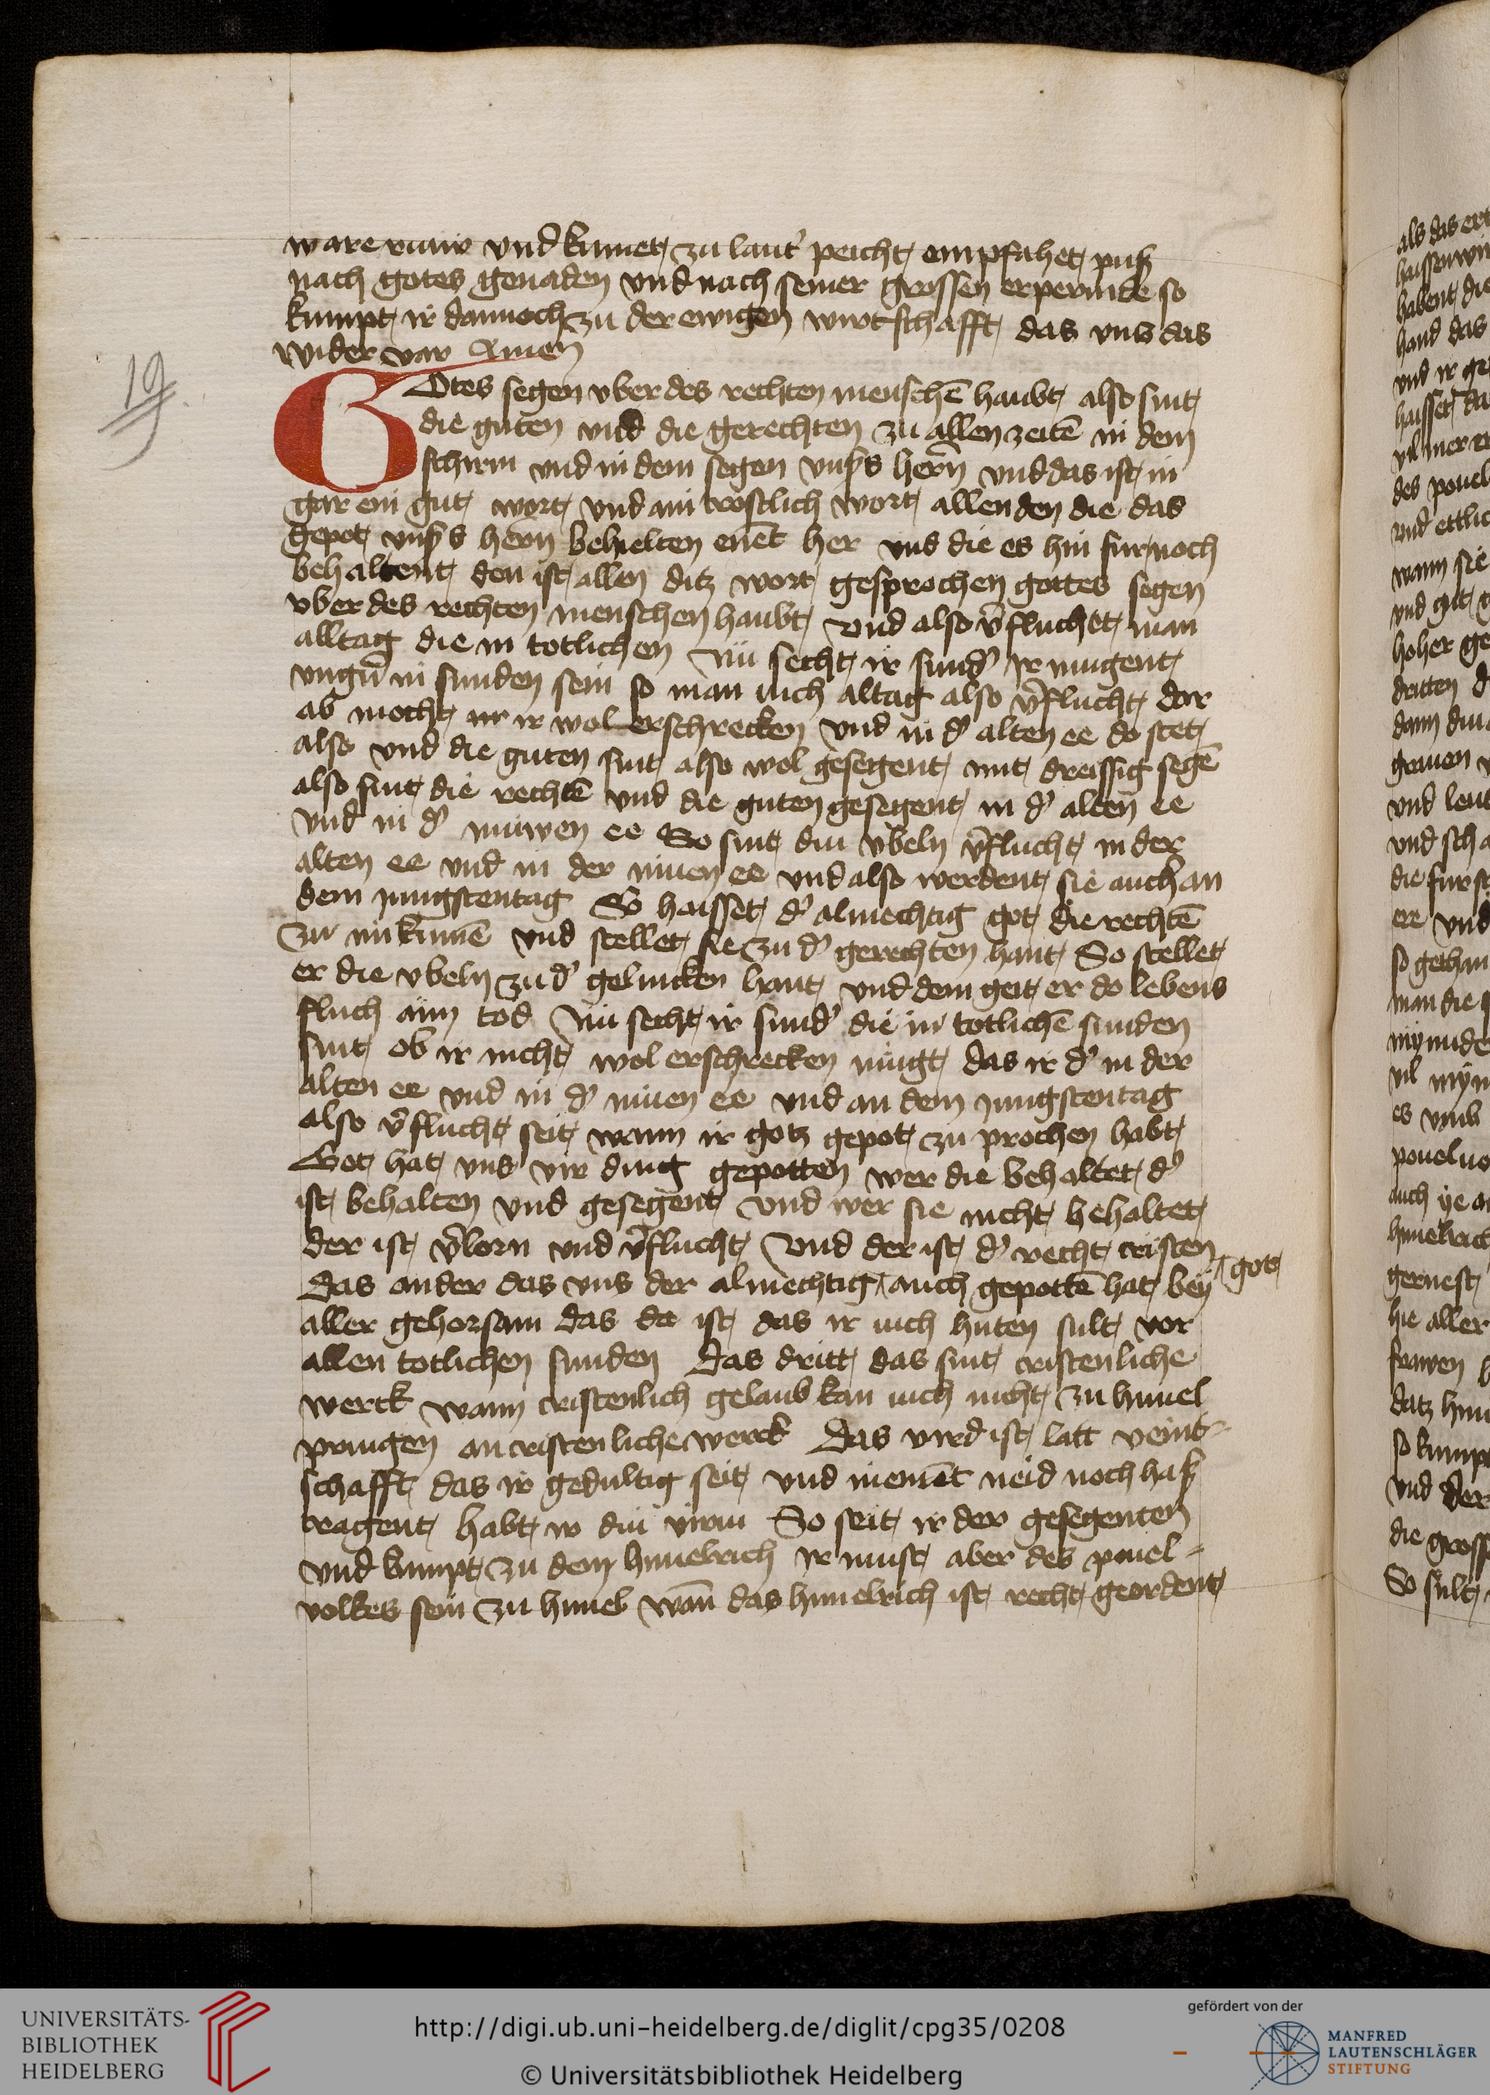 19
ware ruiw vnd kumet zu laut' peicht empfahet puß
nach gotes genaden vnd nach seiner grossen erpermde so
kumpt ir dannoch zu der ewigen wirtschafft das vns das
wider var Amen
GOtes segen vber des rechten menschē haubt also sint
die guten vnd die gerechten zu allen zeitē in dem
schirm vnd in dem segen vnsˢs herñ vnd das ist in
gar ein gut wort vnd ain trostlich wort allen den die das
gepot vnsˢs herñ behielten enēt her vnd die es hin fur noch
behaltent den ist allen ditz wort gesprochen gottes segen
vber des rechten menschen haubt vnd also v̄fluchet man
alltag die in totlichen Nu secht ir sund' ir mugent
vngn̄ in sunden sein so man iuch altag also v̄flucht dar
ab mocht ir wol erschrecken vnd in d' alten ee do stet
also vnd die guten sint also wol gesegent mit dreissig segē
also sint die rechtē vnd die guten gesegent in d' alten ee
vnd in d' niuwen ee So sint diu vbeln v̄flucht in der
alten ee vnd in der niuen ee vnd also werdent sie auch an
dem jungstentag So haisset d' almechtig got die rechtē
zu im kumē vnd stellet sie zu d' gerechten hant So stellet
er die vbeln zu d' gelincken hant vnd dem geit er do lebens
fluch ain tod Nu secht ir sund' die in totlichē sunden
sint ob ir nicht wol erschrecken mugt das ir d' in der
alten ee vnd in d' niuen ee vnd an dem jungstentag
also v̄flucht seit wann ir gotz gepot zu prochen habt
Got hat vns vir ding gepotten wer die behaltet d'
ist behalten vnd gesegent vnd wer sie nicht behaltet
der ist v̄lorn vnd v̄flucht Vnd der ist d' recht cristen
das ander das vns der almechtig auch gepottē hat bey
got
aller gehorsam das da ist das ir iuch huten sult vor
allen totlichen sunden Das dritt das sint cristenliche
werck wann cristenlich gelaub kan iuch nicht zu himel
pringen an cristenliche werck Das vird ist latt veint-
schafft das ir gedultig seit vnd niemēt neid noch haß
tragent habt ir diu viriu So seit ir der gesegenten
vnd kumpt zu dem himelrich ir must aber des pouel-
volkes sein zu himel wañ das himelrich ist recht geordent
UNIVERSITÄTS-
BIBLIOTHEK
HEIDELBERG
http://digi.ub.uni-heidelberg.de/diglit/cpg35/0208
© Universitätsbibliothek Heidelberg
gefördert von der
MANFRED
LAUTENSCHLÄGER
STIFTUNG